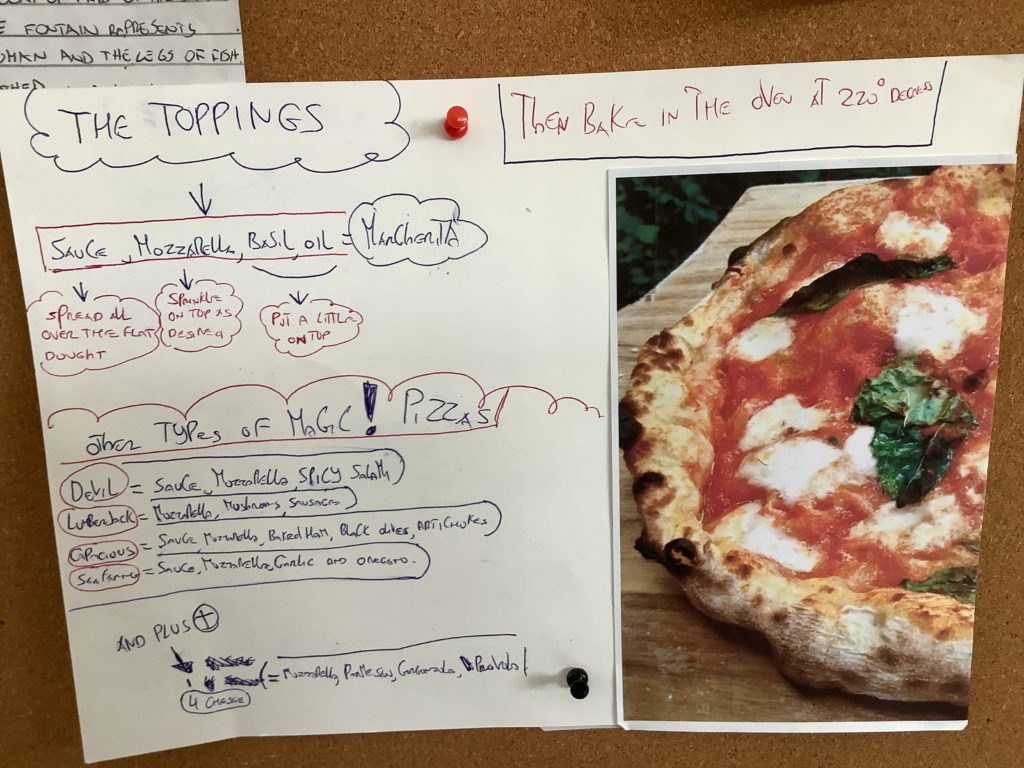 E FONTAIN RAPRESENTS
AND THE LEGS OF FISH.
THE TOPPINGS
THEN BAKE IN THE OVEN AT 220° DEGRESS
SAUCE, MOZZARELLA, BASIL, OIL = MARGHERITA
SPREAD ALL
OVER THE FLAT
DOUGHT
SPRINKLE
ON TOP AS
DESIRED
PUT A LITTLE
ON TOP
OTHER TYPES OF MAGIC! PIZZAS
DEVIL = SAUCE, MOZZARELLA, SPICY SALAMI
LUMBERJACK = MOZZARELLA, MUSHROOMS, SAUSAGES
CAPACIOUS = SAUCE, MOZZARELLA, BAKED HAM, BLACK OLIVES, ARTICHOKES
= SAUCE, MOZZARELLA, GARLIC AND OREGANO.
AND PLUS +
= MOZZARELLA, GORGONZOLA, PROVOLA
4 CHESSE